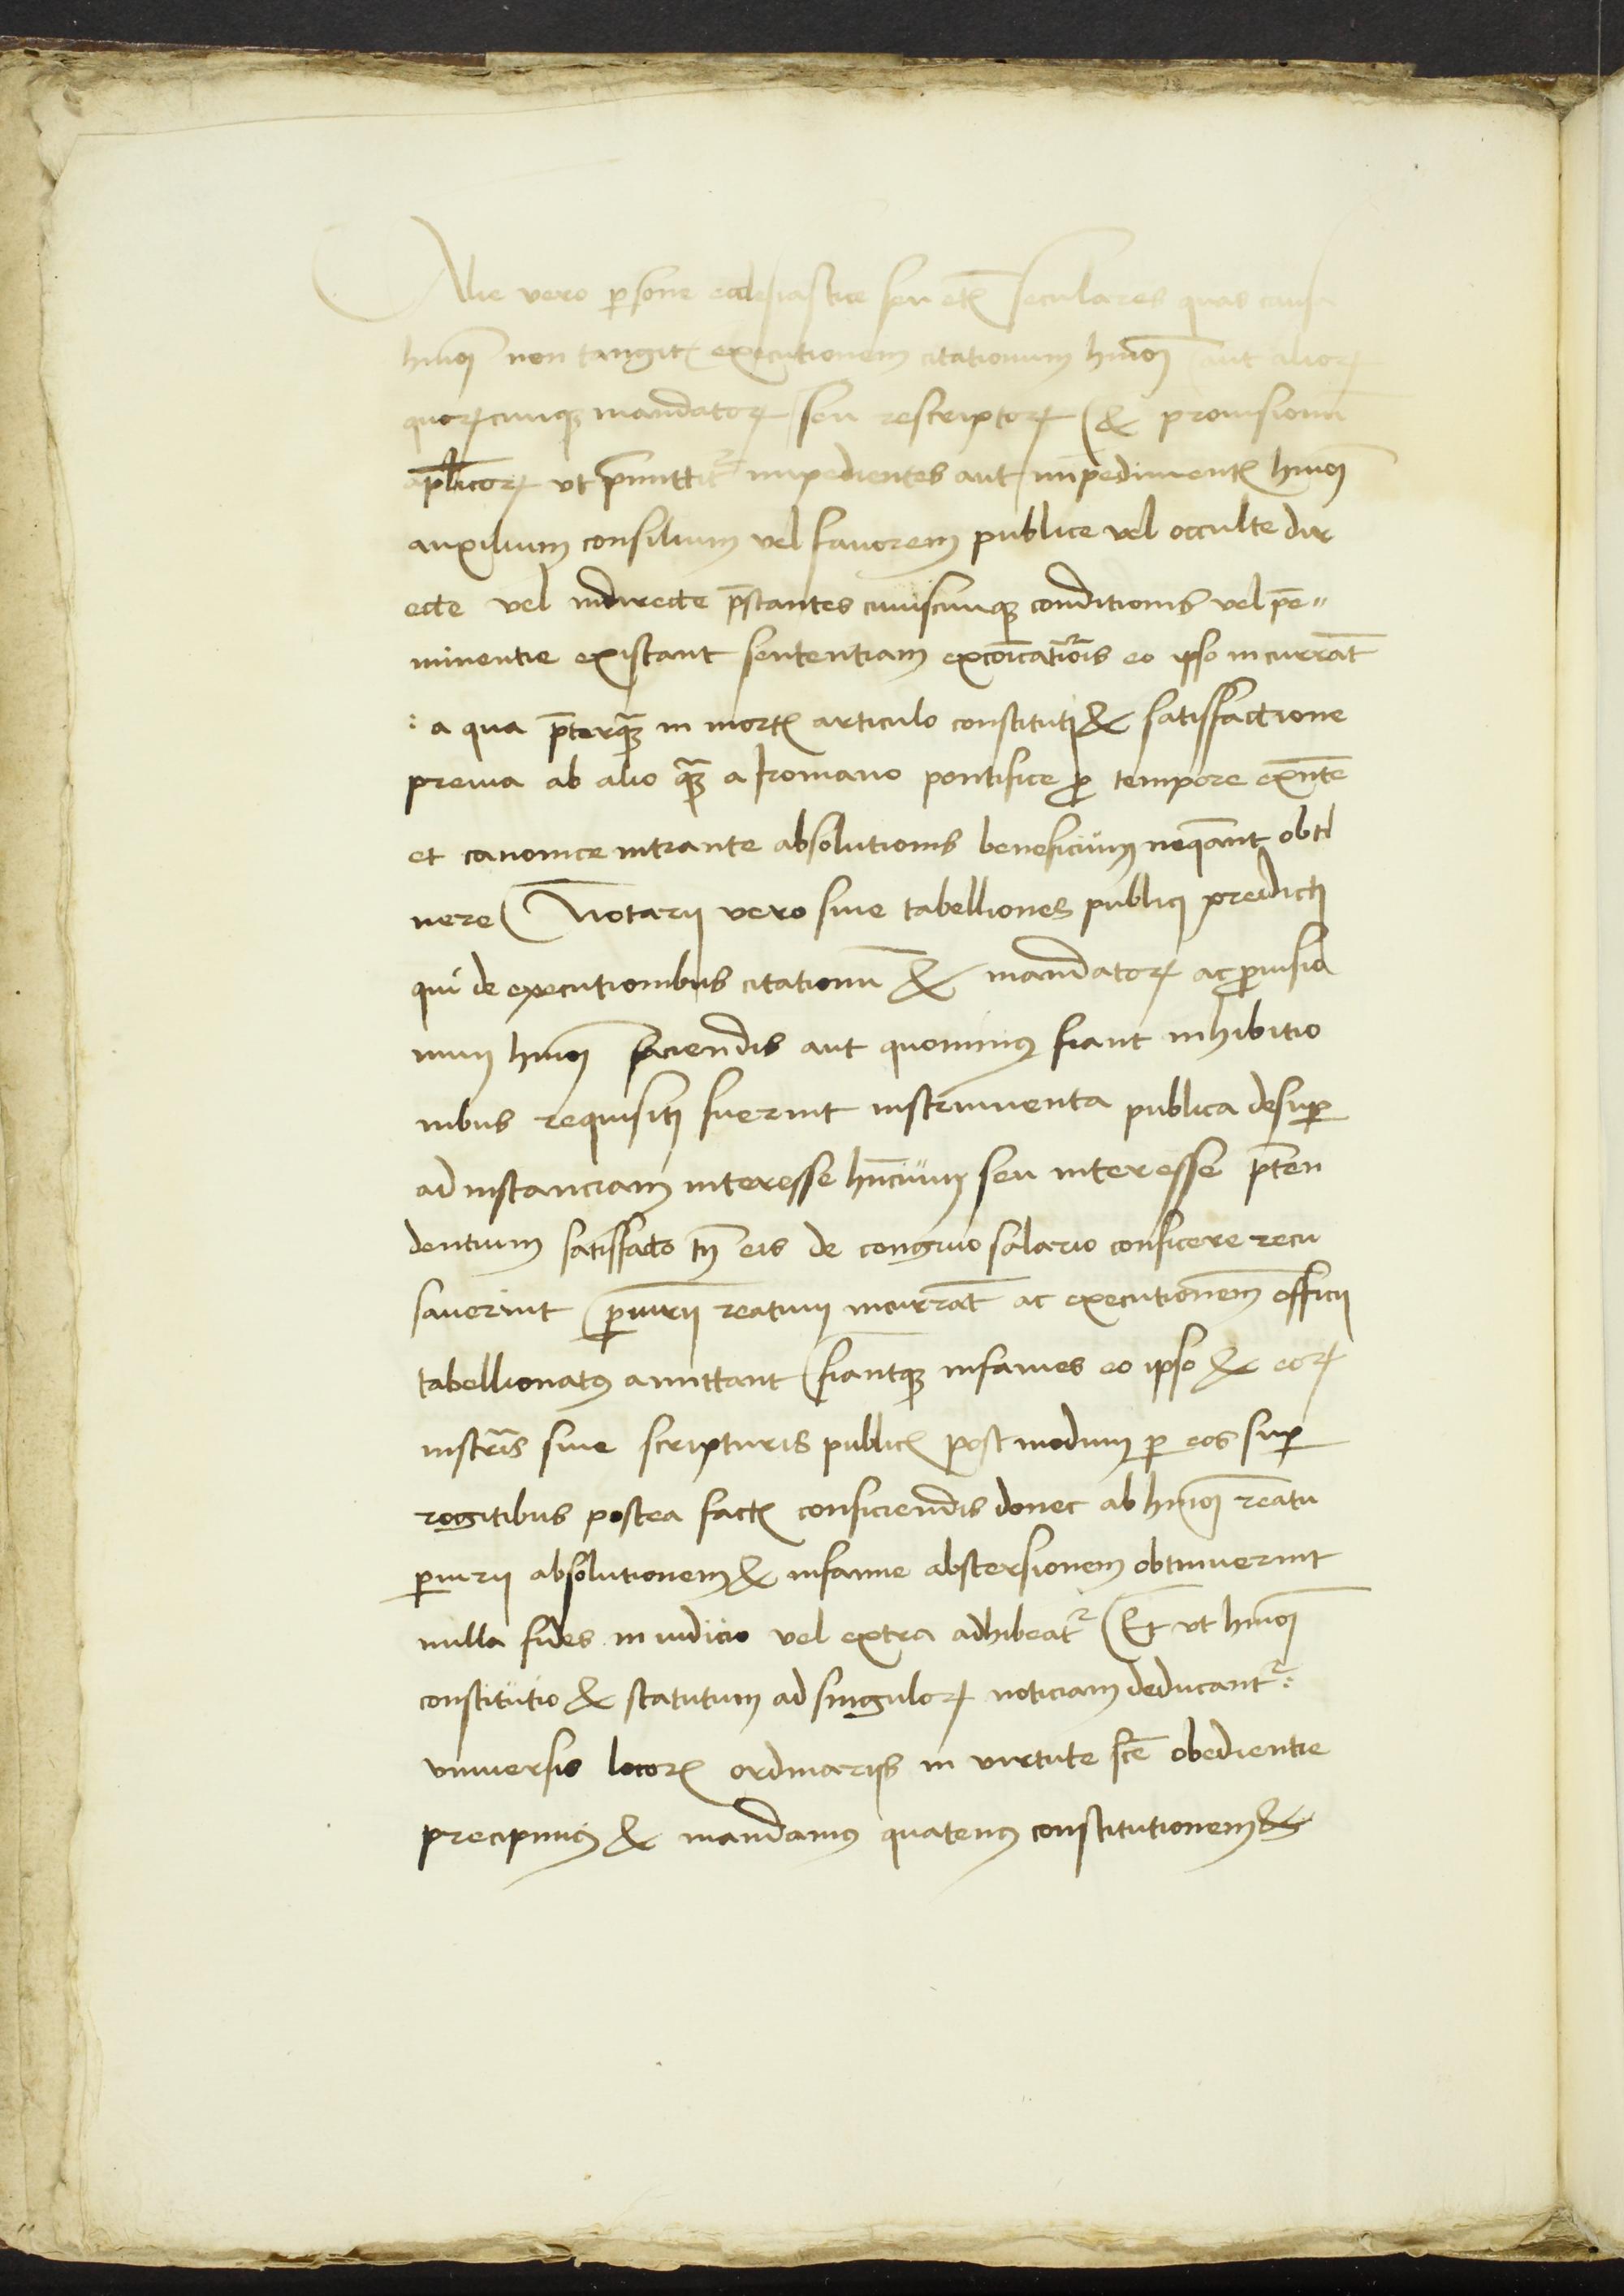 Alie vero ꝑsone ecclesiastice seu etꝫ seculares quas causa
hmōi non tangit executionem citationum hmōi aut alioꝝ
quoꝝcunqꝫ mandatoꝝ seu rescriptoꝝ & prouisionū
aplicoꝝ ut p̄mittit᷑ impedientes aut impedimentꝭ hmōi
auxilium consilium vel fauorem publice vel occulte dir
ecte vel indirecte p̄stantes cuiuscunqꝫ conditionis vel p̄e〃
minentie existant sententiam excōicatiōis eo ipso incurrāt
: a qua p̄terqꝫ̄ in mortꝭ articulo constituti & satisfactione
preuia ab alio qꝫ̄ a Romano pontifice ꝓ tempore exn̄te
et canonice intrante absolutionis beneficium neq̄ant obti
nere Notarii vero siue tabelliones publici predicti
qui de executionibus citationū & mandatoꝝ ac ꝓuisio
num hmōi faciendis aut quominꝰ fiant inhibitio
nibus requisiti fuerint instrumenta publica desuꝑ
ad instanciam interesse hn̄cium seu interesse p̄ten
dentium satisfacto tn̄ eis de congruo salario conficere recu
sauerint ꝑiurii reatum incurrāt ac executionem officii
tabellionatꝰ amittant fiantqꝫ infames eo ipso & eoꝝ
instrīs siue scripturis publicꝭ postmodum ꝑ eos suꝑ
rogitibus postea factꝭ conficiendis donec ab hmōi reatu
ꝑiurii absolutionem & infamie abstersionem obtinuerint
nulla fides in iudicio vel extra adhibeat᷑ Et ut hmōi
constitutio & statutum ad singuloꝝ noticiam deducant᷑:
vniuersis locoꝝ ordinariis in virtute scē obedientie
precipimꝰ & mandamꝰ quatenꝰ constitutionem &